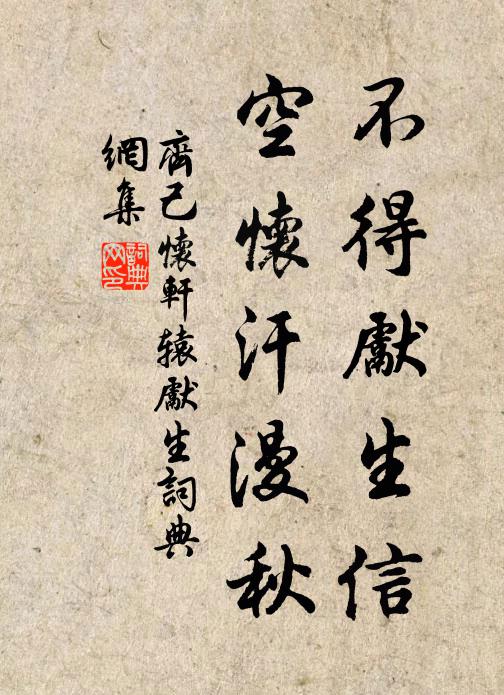 不得獻生信
空懷汗漫秋
齊己懷軒辕獻生詞典
網集
詞典网印